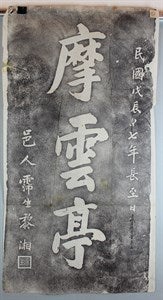 民國戊辰十七年長至日
摩雲亭
邑人霈生黎湘